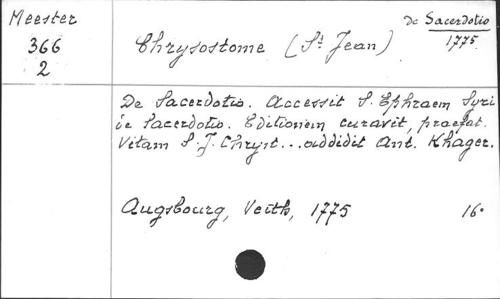 Meester
366
2
Chrysostome (St Jean)
de Sacerdotio
1775
De Sacerdotio. Accessit S. Ephraem Syri
de Sacerdotio. Editionem curavit, praefat.
Vitam S. J. Chryst... addidit Ant. Khager.
Augsbourg, Veith, 1775 16°